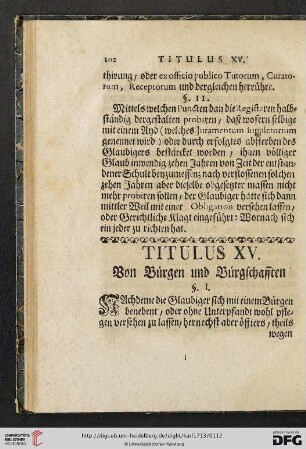 102 TITULUS XV.
thirung / oder ex officio publico Tutorum, Curato-
rum, Receptorum und dergleichen herrühre.
§. 11.
Mittels welchen Puncten dan die Registeren halb-
ständig dergestalten probiren / daß wofern selbige
mit einem Ayd (welches Juramentum suppletorium
genennet wird) oder durch erfolgtes absterben des
Glaubigers bestärcket worden / ihnen völliger
Glaub inwendig zehen Jahren von Zeit der entstan-
dener Schult beyzumessen; nach verflossenen solchen
zehen Jahren aber dieselbe obgesetzter massen nicht
mehr probiren sollen / der Glaubiger hätte sich dann
mittler Weil mit einer Obligation versehen lassen /
oder Gerichtliche Klagt eingeführt: Wornach sich
ein jeder zu richten hat.
TITULUS XV.
Von Bürgen und Bürgschafften
§. I.
NAchdeme die Glaubiger sich mit einem Bürgen
benebent / oder ohne Unterpfandt wohl pfle-
gen versehen zu lassen / hernechst aber öffters / theils
wegen
UNIVERSITÄTS-
BIBLIOTHEK
HEIDELBERG
http://digi.ub.uni-heidelberg.de/diglit/kurl1713/0112
© Universitätsbibliothek Heidelberg
gefördert durch die
DFG